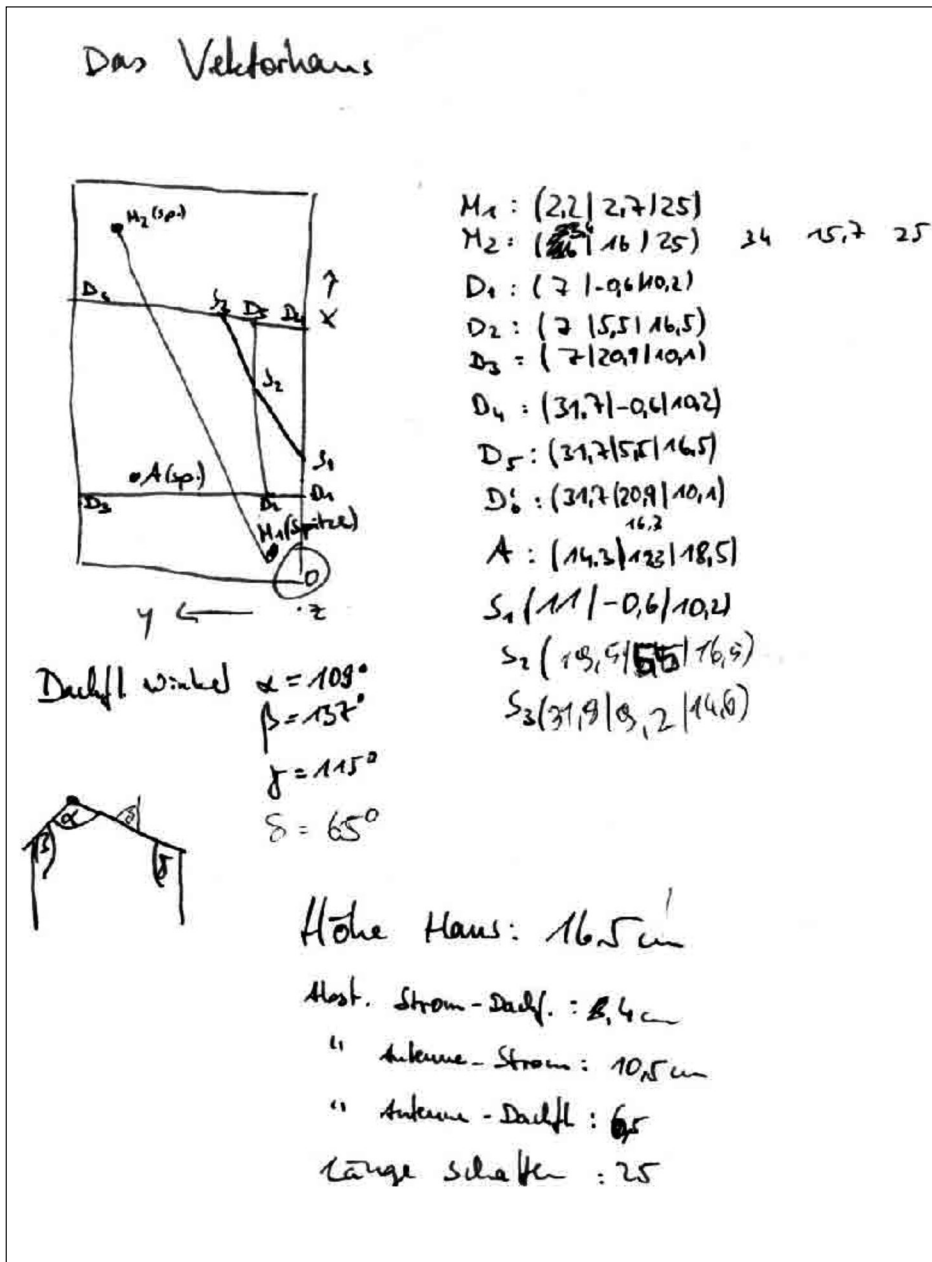 Das Vektorhaus
M₂ (Sp.)
D₆ S₃ D₅ D₄
↑
X
S₂
S₁
A (Sp.)
D₃ D₂ D₁
M₁ (Spitze)
O
y ←
·z
M₁ : (2,2 | 2,7 | 25)
M₂ : ( | 16 | 25) 34 15,7 25
D₁ : ( 7 | -0,6 | 10,2)
D₂ : ( 7 | 5,5 | 16,5)
D₃ = ( 7 | 20,9 | 10,1)
D₄ : (31,7 | -0,6 | 10,2)
D₅ : (31,7 | 5,5 | 16,5)
D₆ : (31,7 | 20,9 | 10,1)
16,3
A : (14,3 | | 18,5)
S₁ ( 11 | -0,6 | 10,2)
S₂ ( 19,5 | 5,5 | 16,5)
S₃ (31,9 | 9,2 | 14,6)
Dachfl. winkel α = 109°
β = 137°
γ = 115°
δ = 65°
β α δ γ
Höhe Haus : 16,5 cm
Abst. Strom - Dachf. : 8,4 cm
" Antenne - Strom : 10,5 cm
" Antenne - Dachfl : 6,5
Länge Schatten : 25